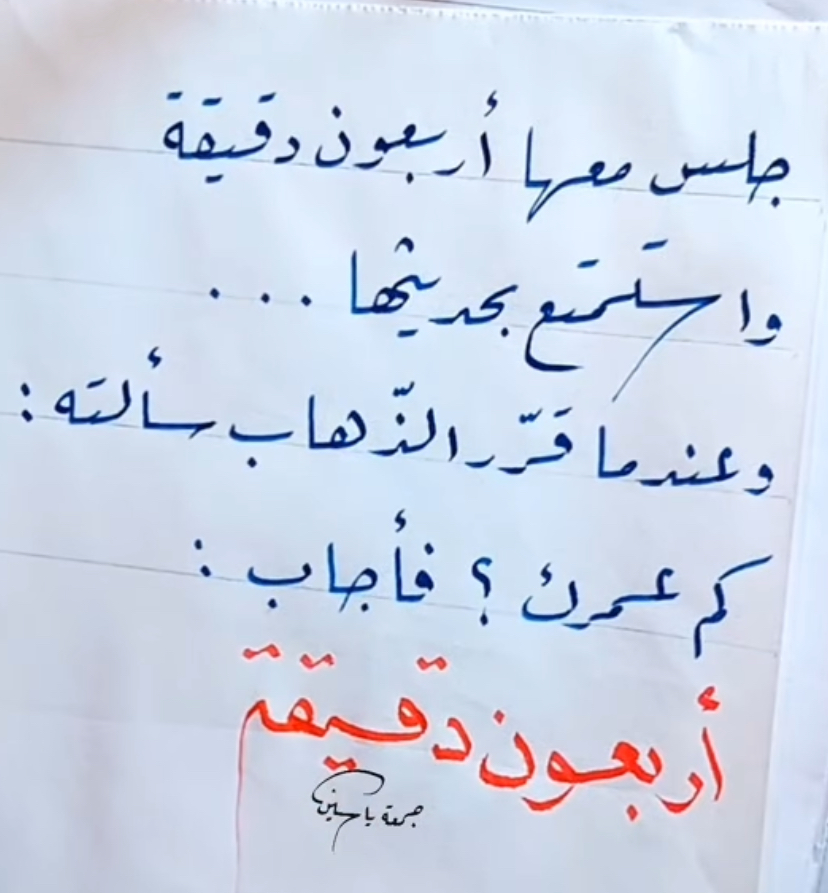 جلس معها أربعون دقيقة
واستمتع بحديثها ...
وعندما قرّر الذّهاب سألته :
كم عمرك ؟ فأجاب :
أربعون دقيقة
جمعة ياسين